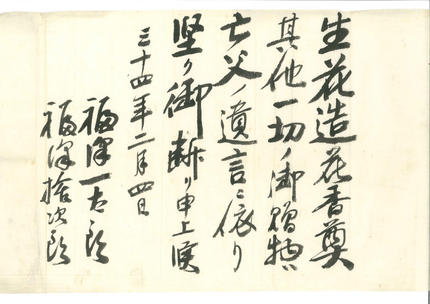 生花造花香奠
其他一切ノ御贈物ハ
亡父ノ遺言ニ依リ
堅ク御断リ申上候
三十四年二月四日
福澤一太郎
福澤捨次郎